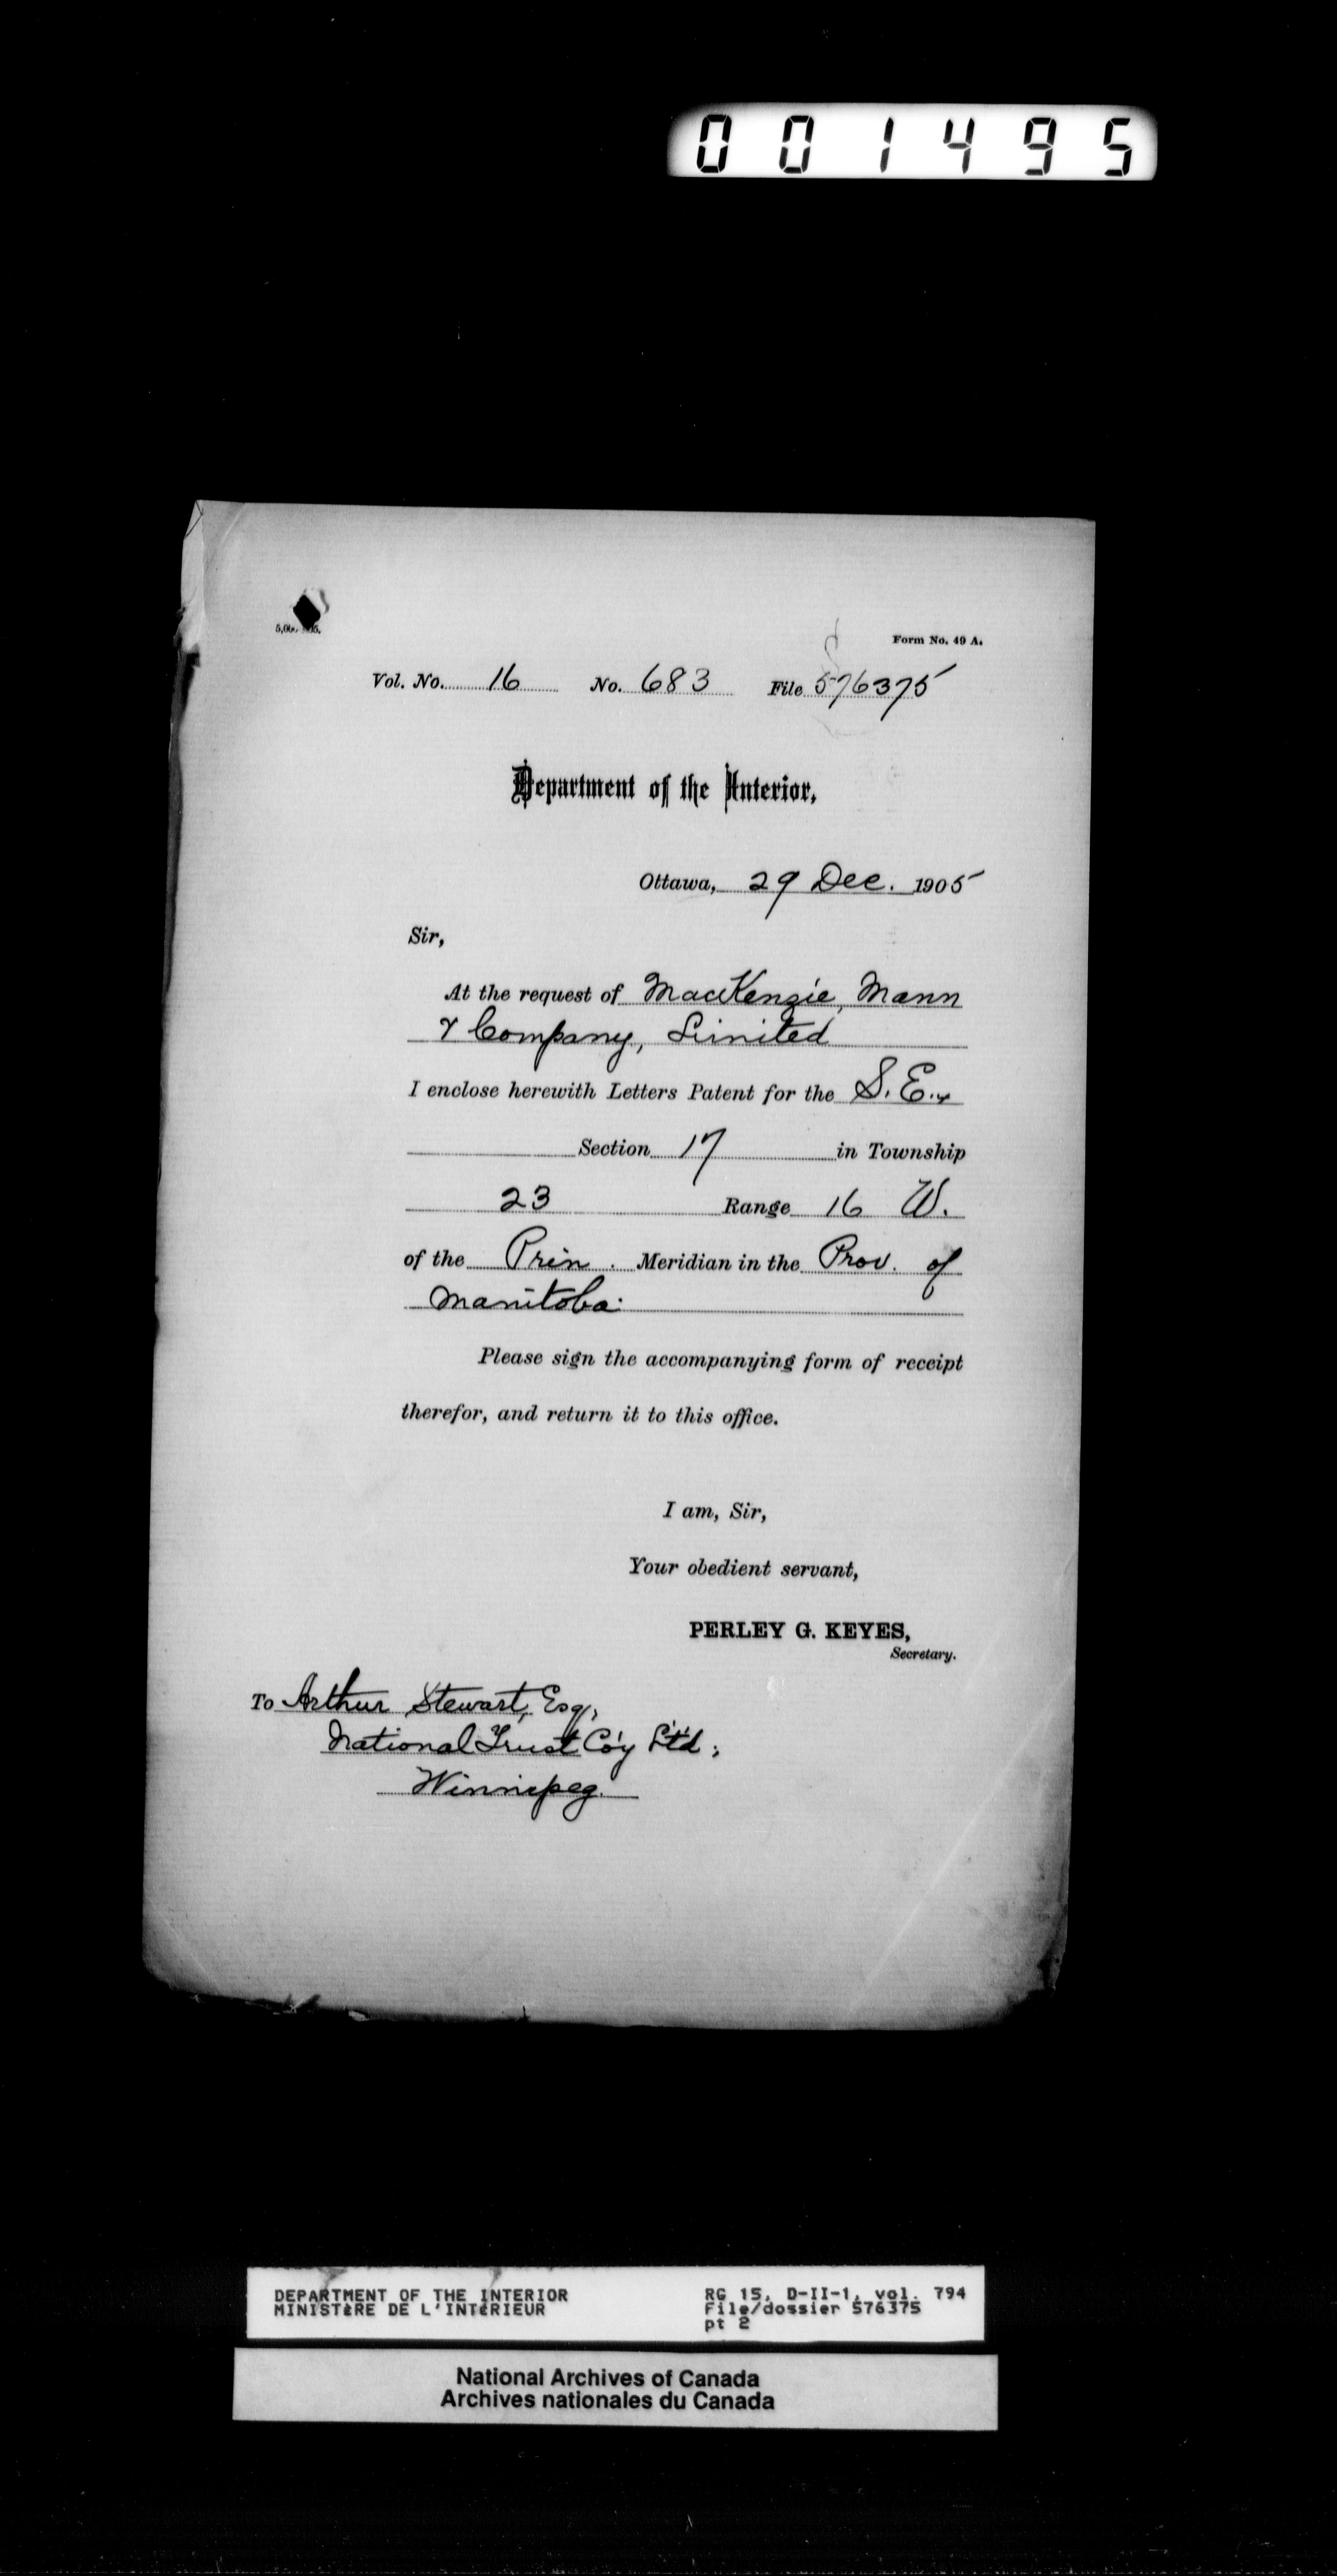 001495
Form No. 49 A.
Vol. No. 16 No. 683 File 576375
Department of the Interior,
Ottawa, 29 Dec. 1905
Sir,
At the request of MacKenzie, Mann
& Company, Limited
I enclose herewith Letters Patent for the S.E.¼
Section 17 in Township
23 Range 16 W.
of the Prin. Meridian in the Prov. of
Manitoba.
Please sign the accompanying form of receipt
therefor, and return it to this office.
I am, Sir,
Your obedient servant,
PERLEY G. KEYES,
Secretary.
To Arthur Stewart, Esq,
National Trust Co'y Lt'd;
Winnipeg.
DEPARTMENT OF THE INTERIOR RG 15, D-II-1, vol. 794
MINISTÈRE DE L'INTÉRIEUR File/dossier 576375
pt 2
National Archives of Canada
Archives nationales du Canada